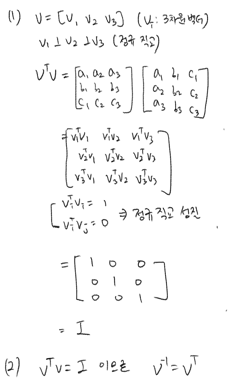 (1) V = [V₁ V₂ V₃] (Vᵢ: 3차원 벡터)
V₁ ⊥ V₂ ⊥ V₃ (정규 직교)
VᵀV = [a₁ a₂ a₃] [a₁ b₁ c₁]
[b₁ b₂ b₃] [a₂ b₂ c₂]
[c₁ c₂ c₃] [a₃ b₃ c₃]
= [V₁ᵀV₁ V₁ᵀV₂ V₁ᵀV₃]
[V₂ᵀV₁ V₂ᵀV₂ V₂ᵀV₃]
[V₃ᵀV₁ V₃ᵀV₂ V₃ᵀV₃]
[VᵢᵀVᵢ = 1
VᵢᵀVⱼ = 0 ⇒ 정규 직교 성질
= [1 0 0]
[0 1 0]
[0 0 1]
= I
(2) VᵀV = I 이므로 V⁻¹ = Vᵀ